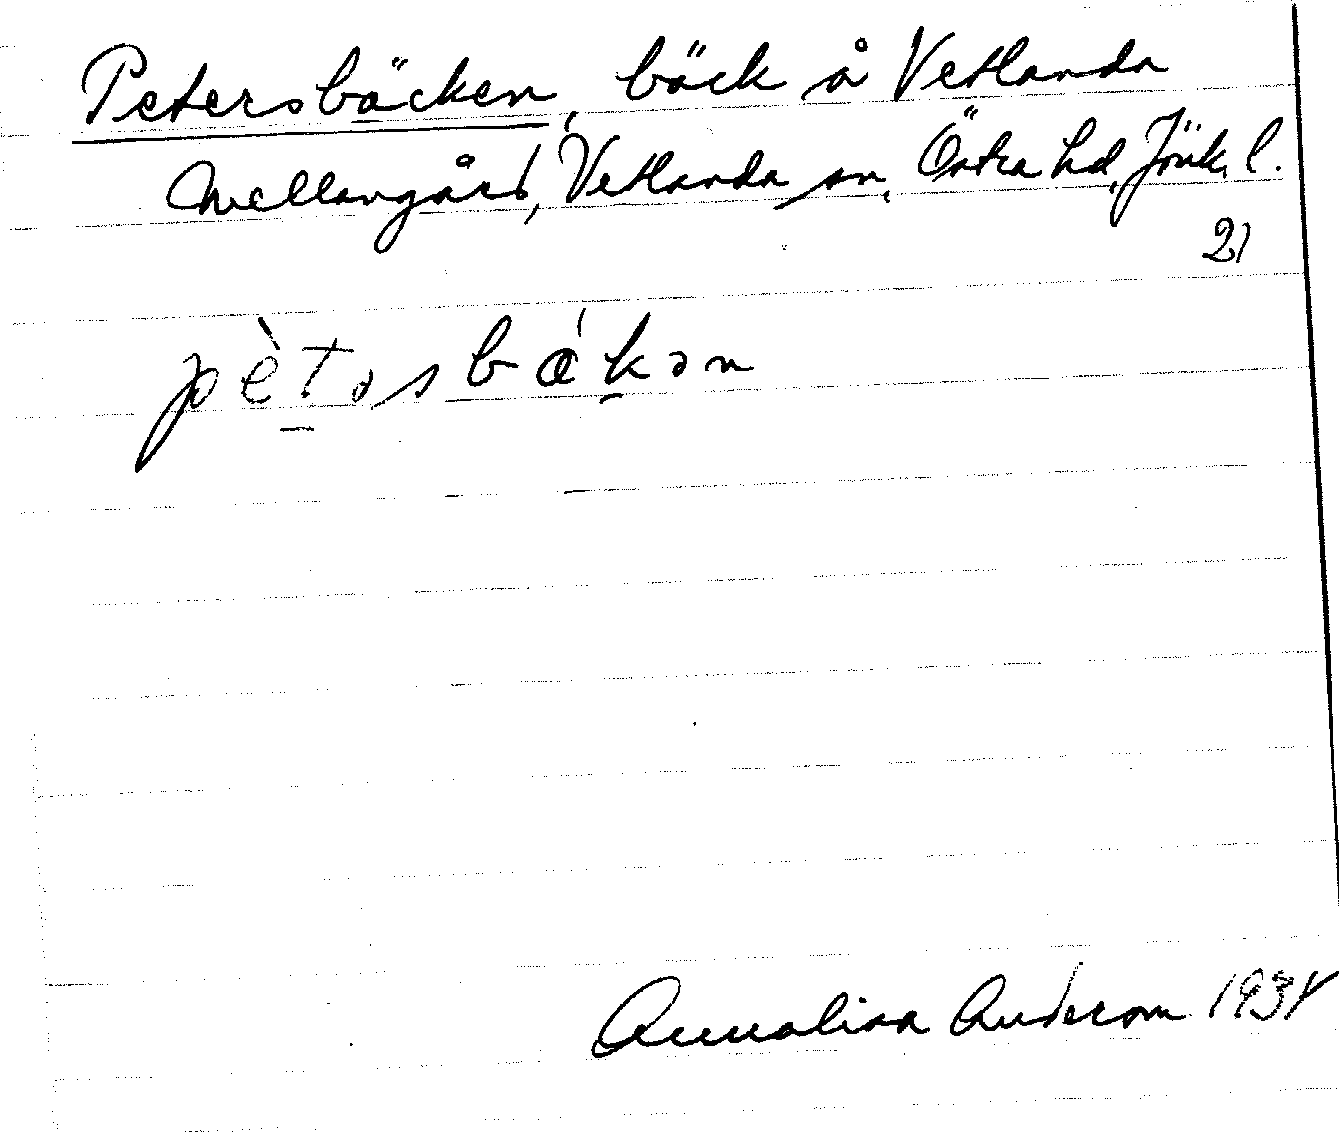 Petersbäcken, bäck å Vetlanda
Mellangård, Vetlanda sn, Östra hd, Jönk. l.
21
pètəsbákən
Annalisa Anderson